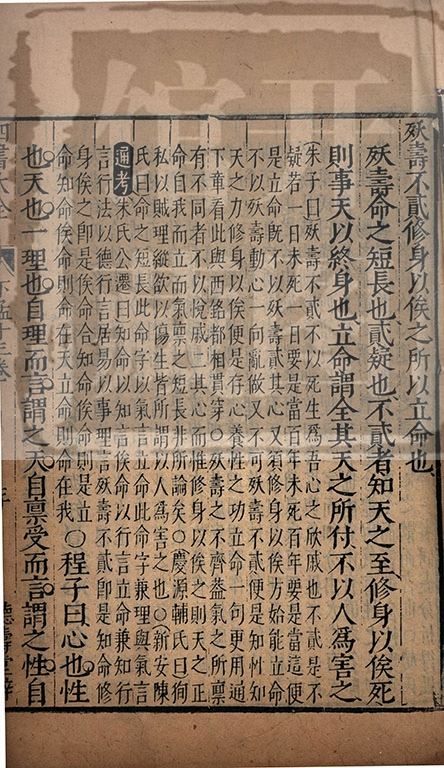 殀壽不貳修身以俟之所以立命也
殀壽命之短長也貳疑也不貳者知天之至修身以俟死
則事天以終身也立命謂全其天之所付不以人爲害之
朱子曰殀壽不貳不以死生爲吾心之欣戚也不貳是不
疑若一日未死一日要是當百年未死百年要是當這便
是立命旣不以殀壽貳其心又須修身以俟方始能立命
不以殀壽動心一向亂做又不可殀壽不貳便是知性知
天之力修身以俟便是存心養性之功立命一句更用通
下章看此與西銘都相貫穿○殀壽之不齊蓋氣之所禀
有不同者不以悅戚二其心而惟修身以俟之則天之正
命自我而立而氣禀之短長非所論矣○慶源輔氏曰徇
私以賊理縱欲以傷生皆所謂以人爲害之也○新安陳
氏曰命之短長此命字以氣言立命此命字兼理與氣言
通考朱氏公遷曰知命以知言俟命以行言立命兼知行
言行法以德行言居易以事理言殀壽不貳即是知命修
身俟之即是俟命合知命俟命則是立
命知命俟命則命在天立命則命在我○程子曰心也性
也天也一理也自理而言謂之天自禀受而言謂之性自
四書大全
下孟十三卷
三
德壽堂梓